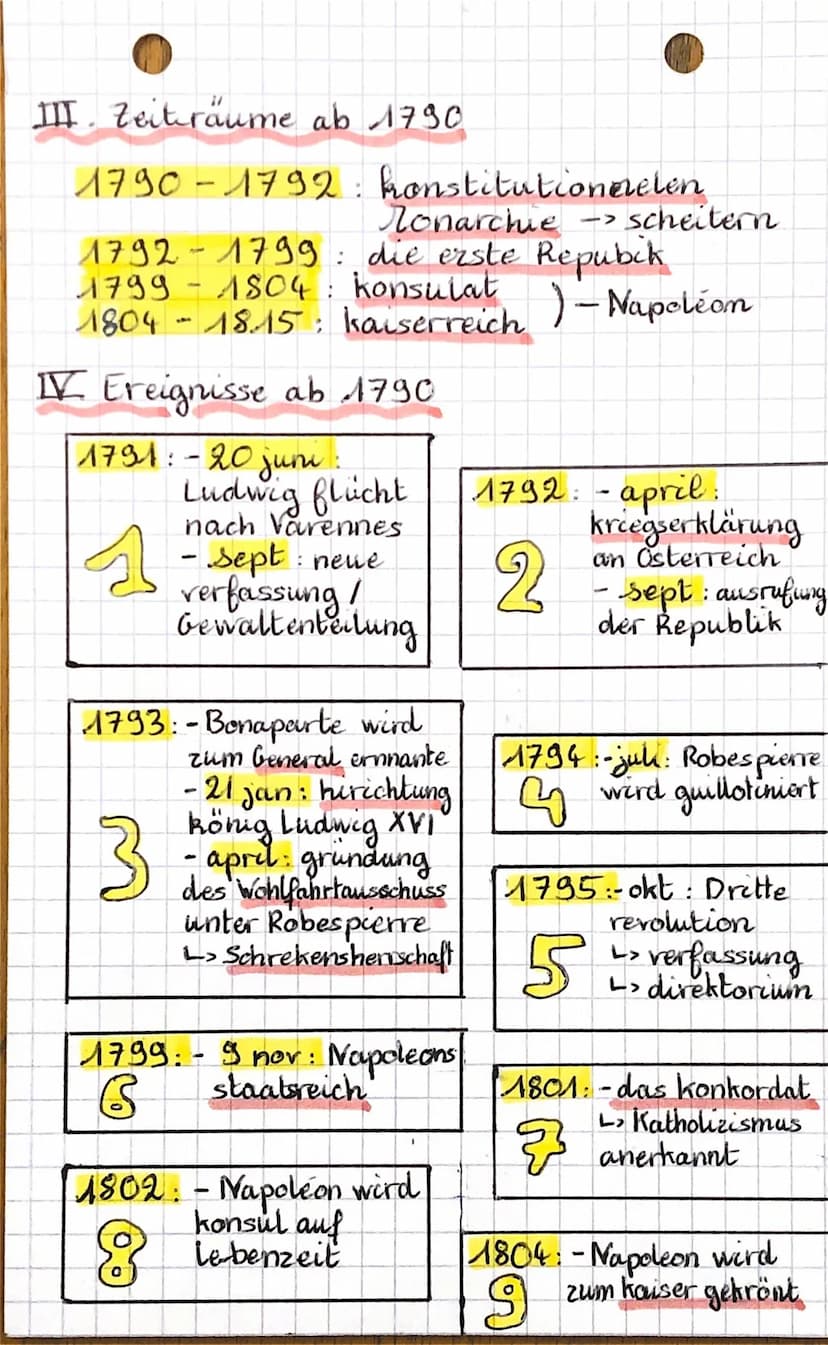 III. Zeiträume ab 1790
1790 - 1792 : konstitutionnelen
Monarchie -> scheitern
1792 - 1799 : die erste Repubik
1799 - 1804 : konsulat
1804 - 1815 : kaiserreich ) - Napoléon
IV Ereignisse ab 1790
1791 : - 20 juni :
Ludwig flücht
nach Varennes
- sept : neue
verfassung /
Gewaltenteilung
1
1792 : - april :
kriegserklärung
an Österreich
- sept : ausrufung
der Republik
2
1793 : - Bonaparte wird
zum General ernnante
- 21 jan : hirichtung
könig Ludwig XVI
- april : gründung
des Wohlfahrtausschuss
unter Robespierre
↳ Schrekensherrschaft
3
1794 : - juli : Robespierre
wird guillotiniert
4
1795 : - okt : Dritte
revolution
↳ verfassung
↳ direktorium
5
1799 : - 9 nov : Napoleons
staatsreich
6
1801 : - das konkordat
↳ Katholizismus
anerkannt
7
1802 : - Napoléon wird
konsul auf
lebenzeit
8
1804 : - Napoleon wird
zum kaiser gekrönt
9